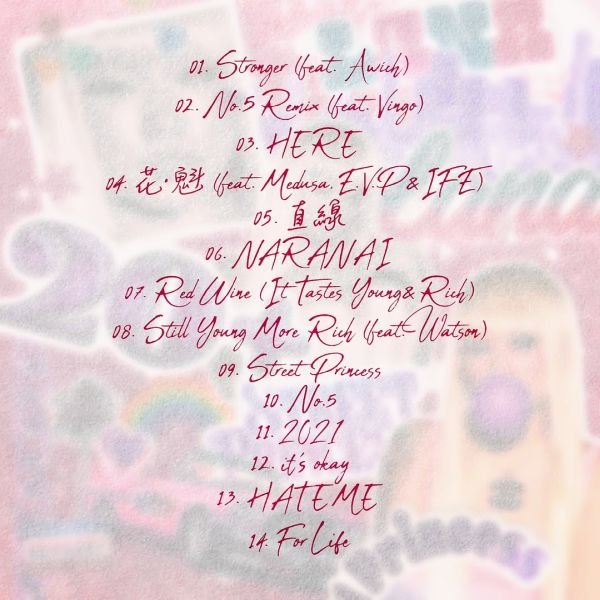 01. Stronger (feat. Awich)
02. No.5 Remix (feat. Vingo)
03. HERE
04. 花·魁 (feat. Medusa, E.V.P & IFE)
05. 直線
06. NARANAI
07. Red Wine (It Tastes Young& Rich)
08. Still Young More Rich (feat. Watson)
09. Street Princess
10. No.5
11. 2021
12. it's okay
13. HATE ME
14. For Life